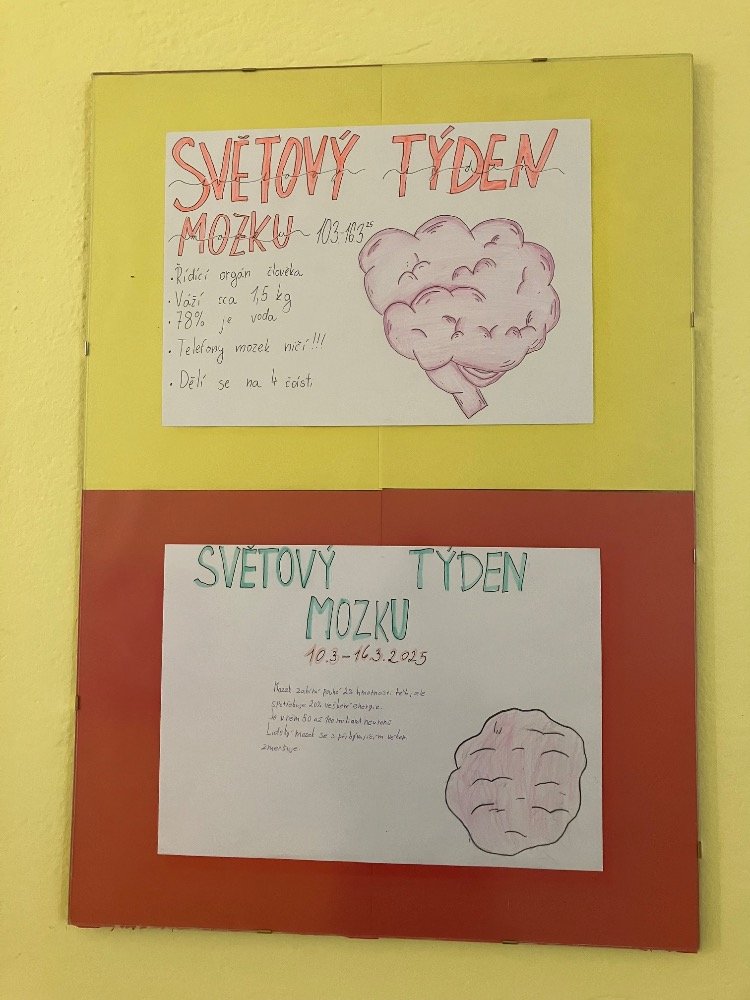 SVĚTOVÝ TÝDEN
MOZKU 10.3-16.3 25
• Řídící orgán člověka
• Váží cca 1,5 kg
• 78% je voda
• Telefony mozek ničí!!!
• Dělí se na 4 části
SVĚTOVÝ TÝDEN
MOZKU
10.3.-16.3.2025
Mozek zabírá pouhé 2% hmotnosti těla, ale
spotřebuje 20% veškeré energie.
Je v něm 80 až 100 miliard neuronů
Lidský mozek se s přibývajícím věkem
zmenšuje